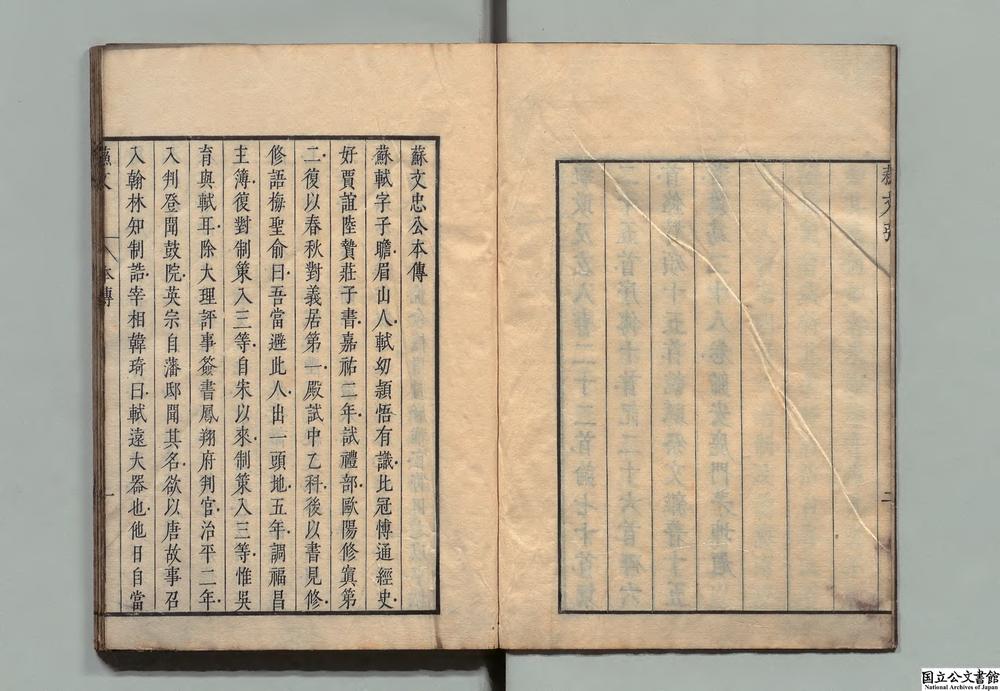 蘇文忠公本傳
蘇軾字子瞻眉山人軾幼頴悟有識比冠愽通經史
好賈誼陸贄莊子書嘉祐二年試禮部歐陽修寘第
二復以春秋對義居第一殿試中乙科後以書見修
修語梅聖俞曰吾當避此人出一頭地五年調福昌
主簿復對制策入三等自宋以來制策入三等惟吳
育與軾耳除大理評事簽書鳳翔府判官治平二年
入判登聞鼓院英宗自藩邸聞其名欲以唐故事召
入翰林知制誥宰相韓琦曰軾遠大器也他日自當
蘇文
本傳
一
二
国立公文書館
National Archives of Japan